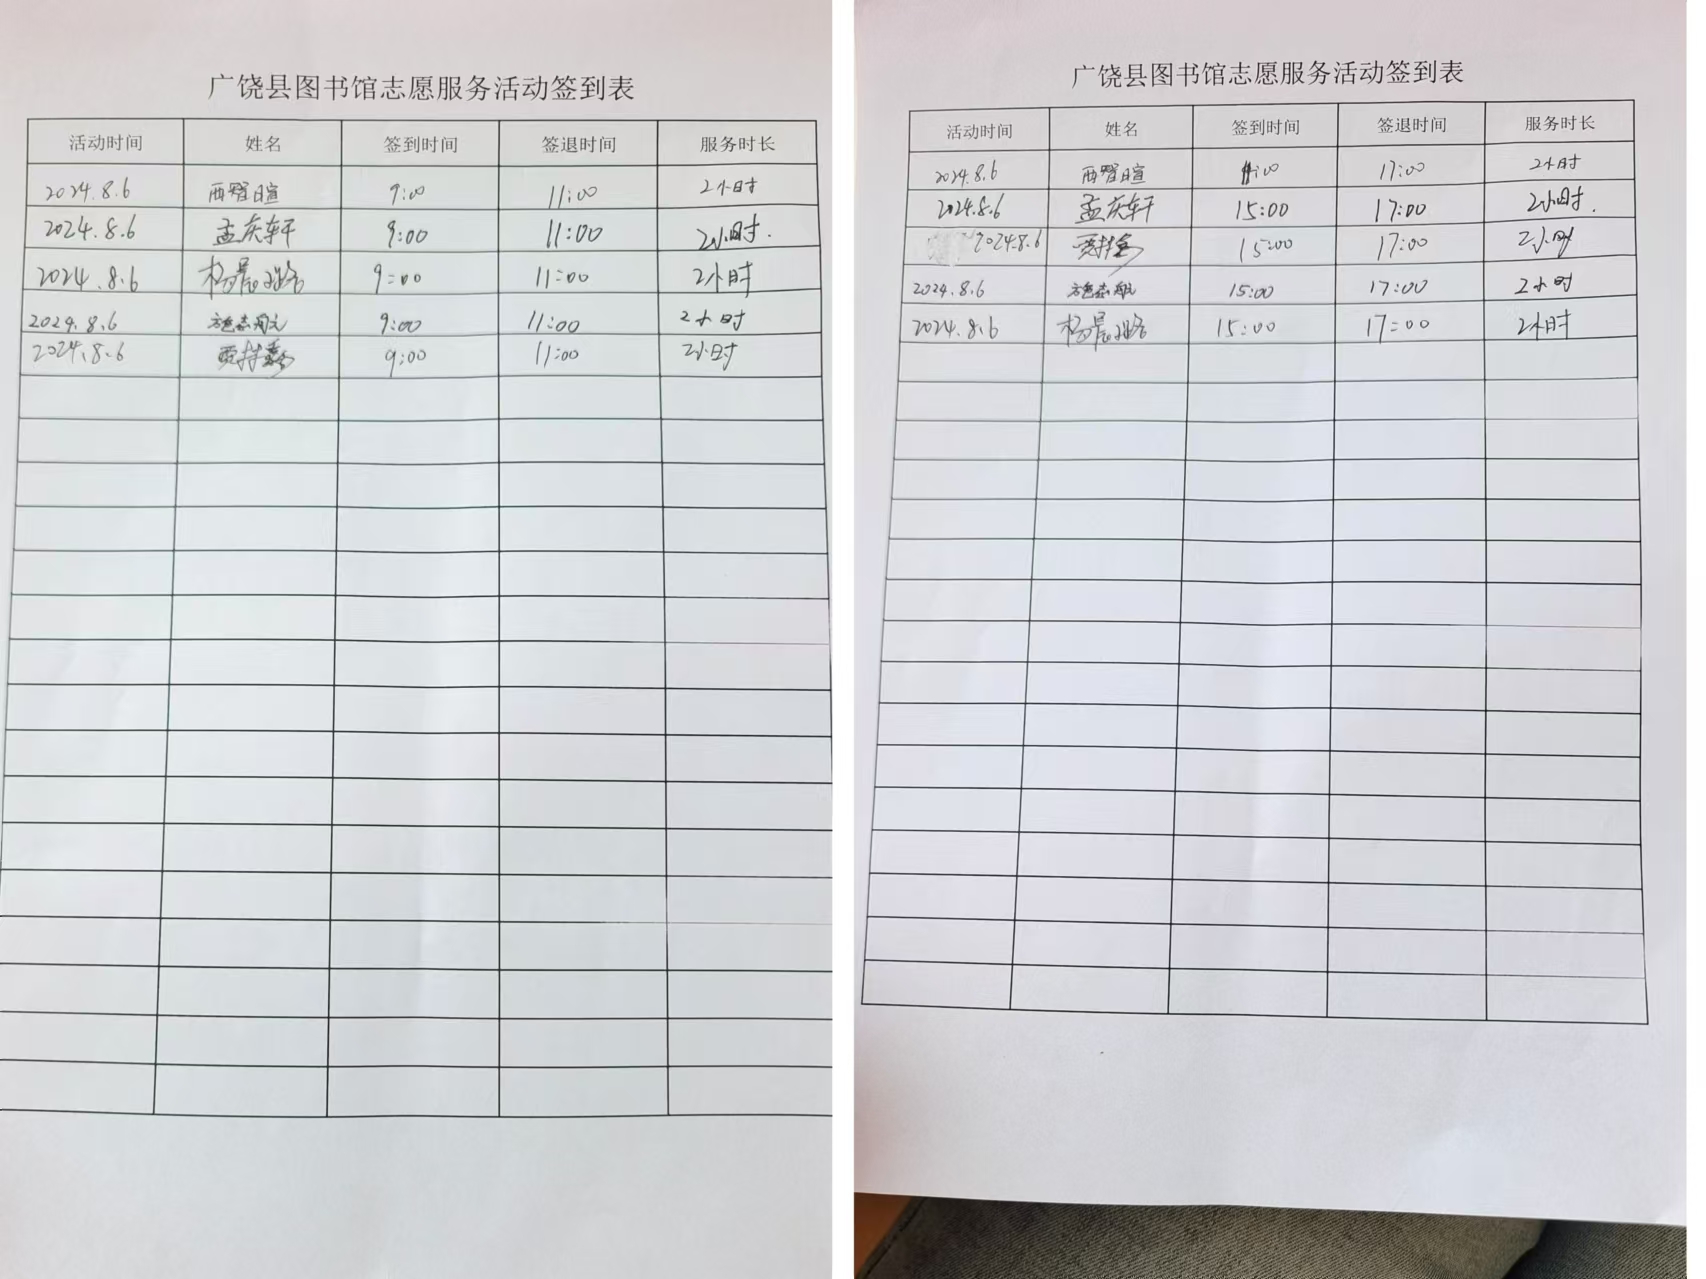 广饶县图书馆志愿服务活动签到表
活动时间 姓名 签到时间 签退时间 服务时长
2024.8.6 9:00 11:00 2小时
2024.8.6 孟庆轩 9:00 11:00 2小时.
2024.8.6 9:00 11:00 2小时
2024.8.6 9:00 11:00 2小时
2024.8.6 9:00 11:00 2小时
广饶县图书馆志愿服务活动签到表
活动时间 姓名 签到时间 签退时间 服务时长
2024.8.6 17:00 2小时
2024.8.6 孟庆轩 15:00 17:00 2小时.
2024.8.6 15:00 17:00 2小时
2024.8.6 15:00 17:00 2小时
2024.8.6 15:00 17:00 2小时